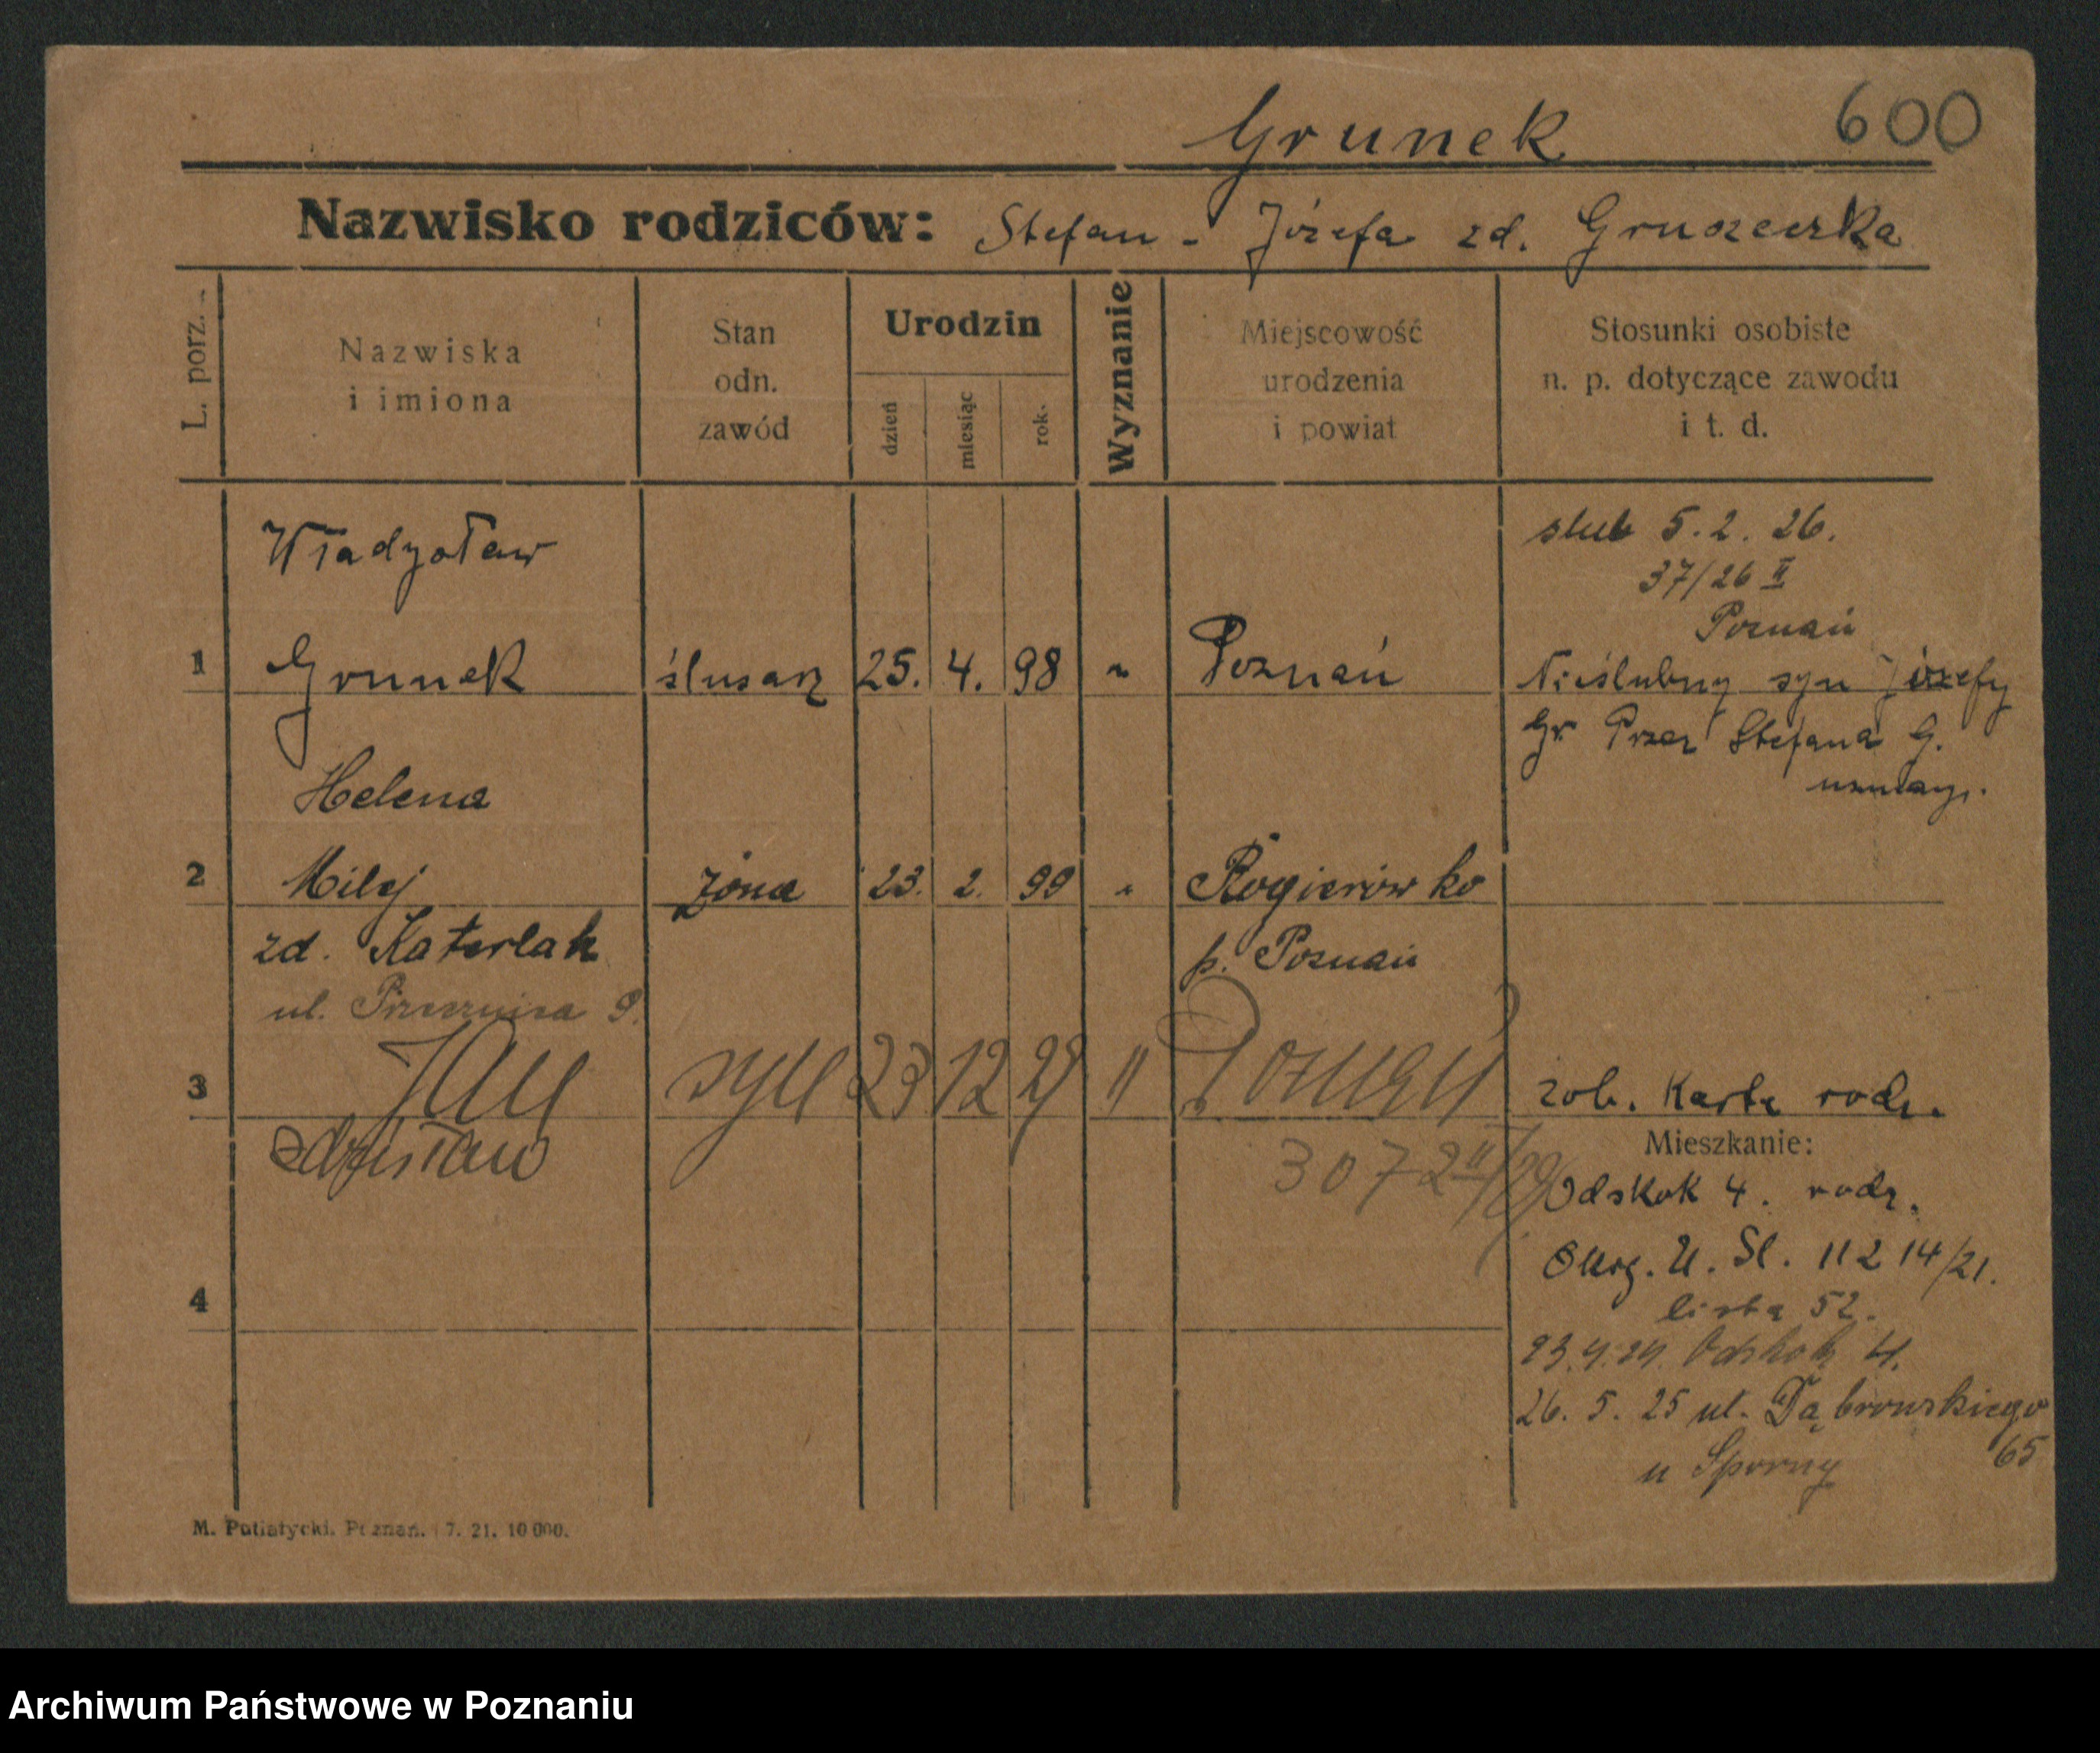 Grunek 600
Nazwisko rodziców: Stefan - Józefa zd. Gruszecka
L. porz.
Nazwiska
i imiona
Stan
odn.
zawód
Urodzin
dzień
miesiąc
rok
Wyznanie
Miejscowość
urodzenia
i powiat
Stosunki osobiste
n. p. dotyczące zawodu
i t. d.
Władysław
ślub 5. 2. 26.
37/26 II
Poznań
1 Grunek ślusarz 25. 4. 98 " Poznań
Nieślubny syn Józefy
Gr. Przez Stefana G.
Helena
2 Milej żona 23. 2. 99 " Rogierówko
zd. Katerlak
p. Poznań
ul. 9.
3 Jan syn 23 12 29 " Poznań
zob. Karta rodz.
Zdzisław
3072 II/29
Mieszkanie:
Odskok 4. rodz.
U. Sl. 112 14/21.
lista 52.
23.4.24. Odskok 4.
4
26. 5. 25 ul. Dąbrowskiego
65
u Sporny
M. Putiatycki. Poznań. 7. 21. 10 000.
Archiwum Państwowe w Poznaniu